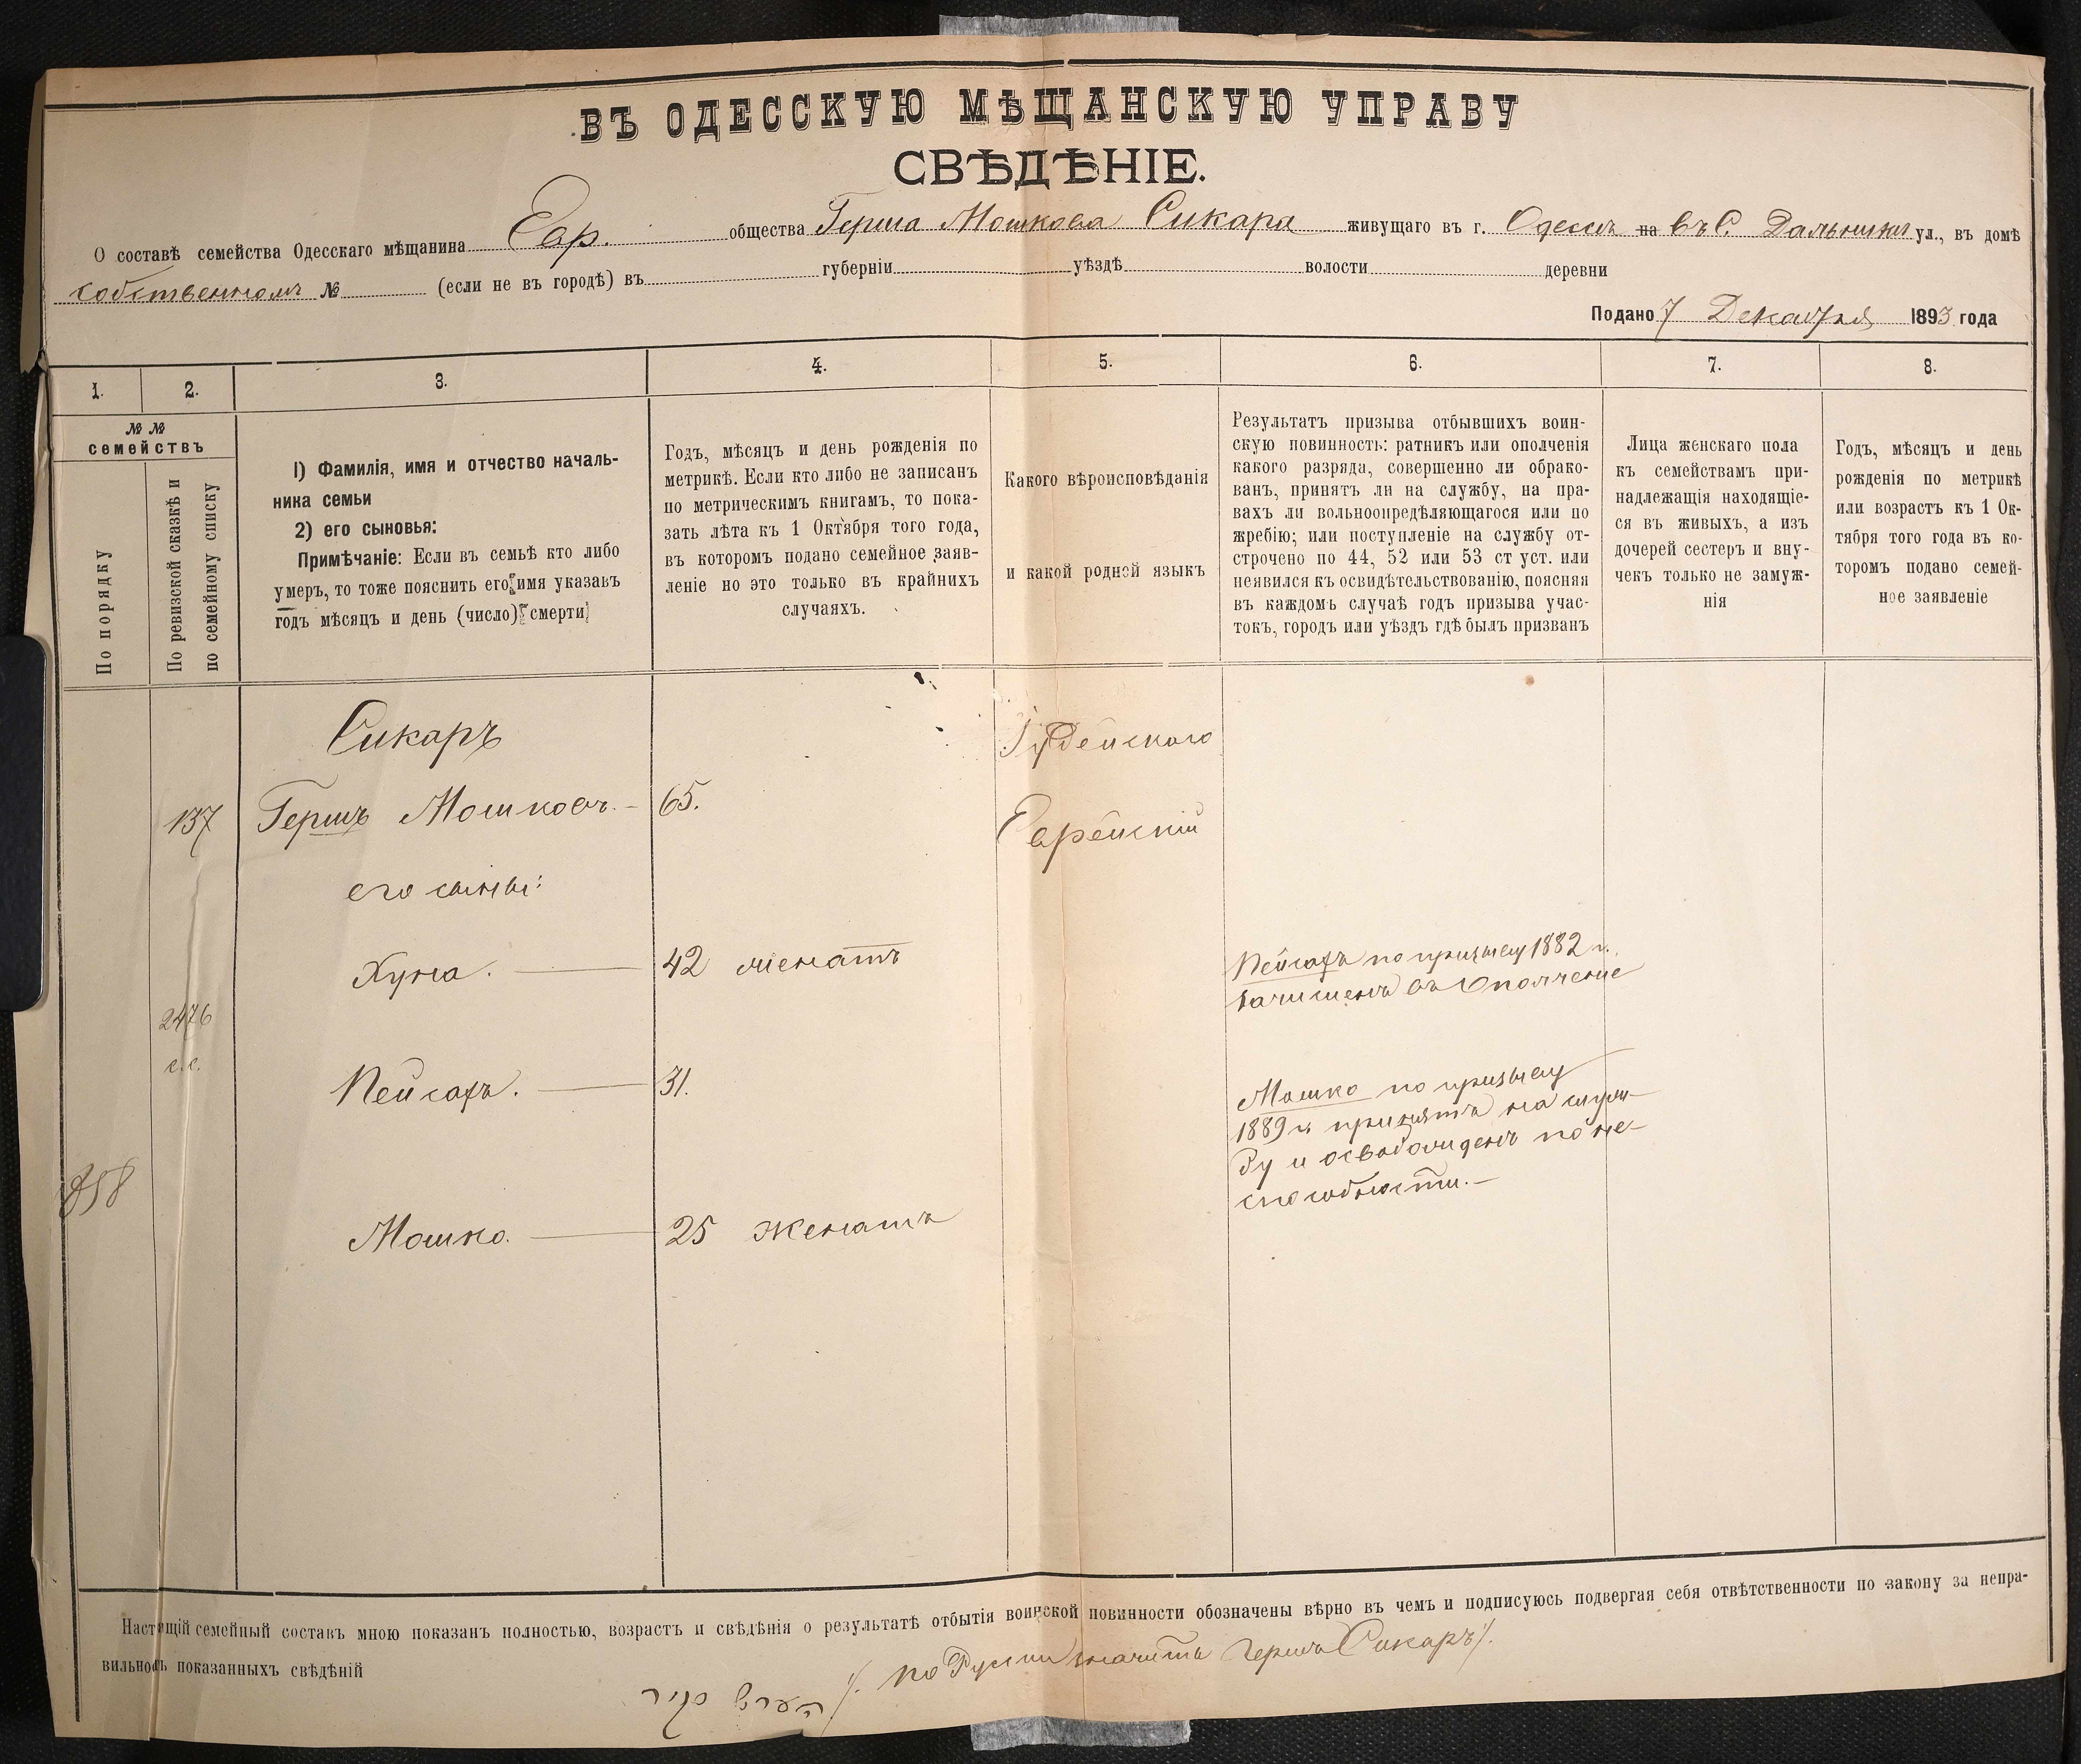 ВЪ ОДЕССКУЮ МѢЩАНСКУЮ УПРАВУ
СВѢДѢНІЕ.
О составѣ семейства Одесскаго мѣщанина Евр. общества Герша Мошкова Сикара живущаго въ г. Одессѣ на въ С. Дальникѣ ул., въ домѣ
собственномъ № (если не въ городѣ) въ губерніи уѣздѣ волости деревни
Подано 7 Декабря 1893 года
1. 2. 3. 4. 5. 6. 7. 8.
№ №
семействъ
По порядку
По ревизской сказкѣ и
по семейному списку
1) Фамилія, имя и отчество началь-
ника семьи
2) его сыновья:
Примѣчаніе: Если въ семьѣ кто либо
умеръ, то тоже пояснить его имя указавъ
годъ мѣсяцъ и день (число) смерти
Годъ, мѣсяцъ и день рожденія по
метрикѣ. Если кто либо не записанъ
по метрическимъ книгамъ, то пока-
зать лѣта къ 1 Октября того года,
въ которомъ подано семейное заяв-
леніе но это только въ крайнихъ
случаяхъ.
Какого вѣроисповѣданія
и какой родной языкъ
Результатъ призыва отбывшихъ воин-
скую повинность: ратникъ или ополченія
какого разряда, совершенно ли обрако-
ванъ, принятъ ли на службу, на пра-
вахъ ли вольноопредѣляющагося или по
жребію; или поступленіе на службу от-
строчено по 44, 52 или 53 ст уст. или
неявился къ освидѣтельствованію, поясняя
въ каждомъ случаѣ годъ призыва учас-
токъ, городъ или уѣздъ гдѣ былъ призванъ
Лица женскаго пола
къ семействамъ при-
надлежащія находящіе-
ся въ живыхъ, а изъ
дочерей сестеръ и вну-
чекъ только не замуж-
нія
Годъ, мѣсяцъ и день
рожденія по метрикѣ
или возрастъ къ 1 Ок-
тября того года въ ко-
торомъ подано семей-
ное заявленіе
Сикаръ
Іудейскаго
137 Гершъ Мошковъ 65.
Еврейскій
его сыны:
Хуна. 42 женатъ
Пейсахъ по призыву 1882 г.
зачисленъ въ Ополченіе
2476
с.с.
Пейсахъ. 31.
Мошко по призыву
1889 г. принятъ на служ-
бу и освобожденъ по не-
способности.
858
Мошко. 25 Женатъ
Настящій семейный составъ мною показанъ полностью, возрастъ и свѣдѣнія о результатѣ отбытія воинской повинности обозначены вѣрно въ чемъ и подписуюсь подвергая себя отвѣтственности по закону за непра-
вильность показанныхъ свѣдѣній
/. по Русски значитъ Гершъ Сикаръ /.